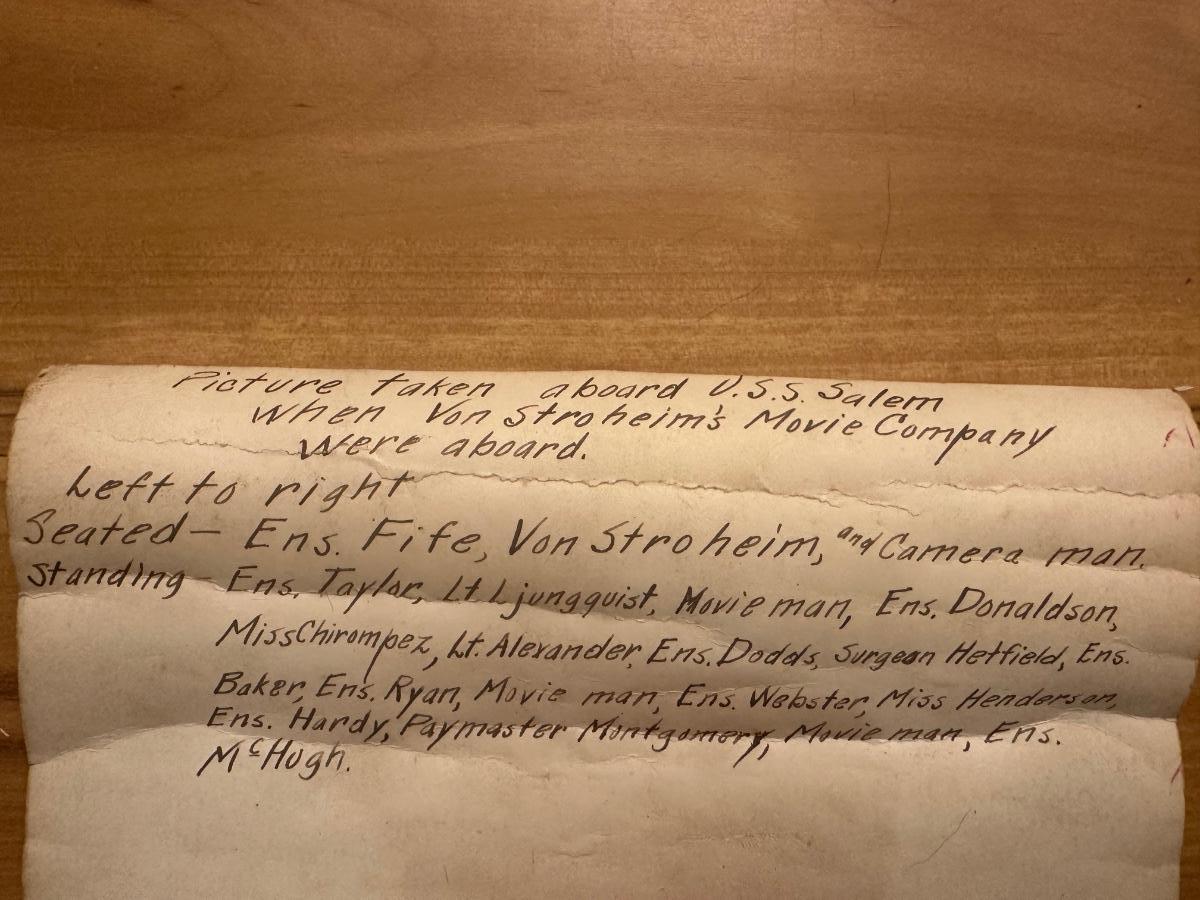 Picture taken aboard U.S.S. Salem
when Von Stroheim's Movie Company
were aboard.
Left to right
Seated— Ens. Fife, Von Stroheim, and Camera man.
Standing— Ens. Taylor, Lt Ljungquist, Movie man, Ens. Donaldson,
Miss Chirompez, Lt. Alexander, Ens. Dodds, Surgeon Hetfield, Ens.
Baker, Ens. Ryan, Movie man, Ens. Webster, Miss Henderson,
Ens. Hardy, Paymaster Montgomery, Movie man, Ens.
McHugh.